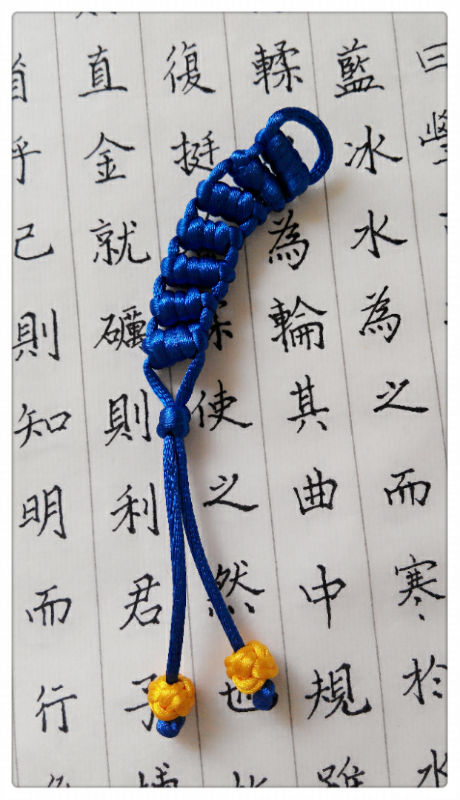 曰
藍冰水為之而寒於水
輮為輪其曲中規雖
復挺使之然也
直金就礪則利君子博
省乎己則知明而行